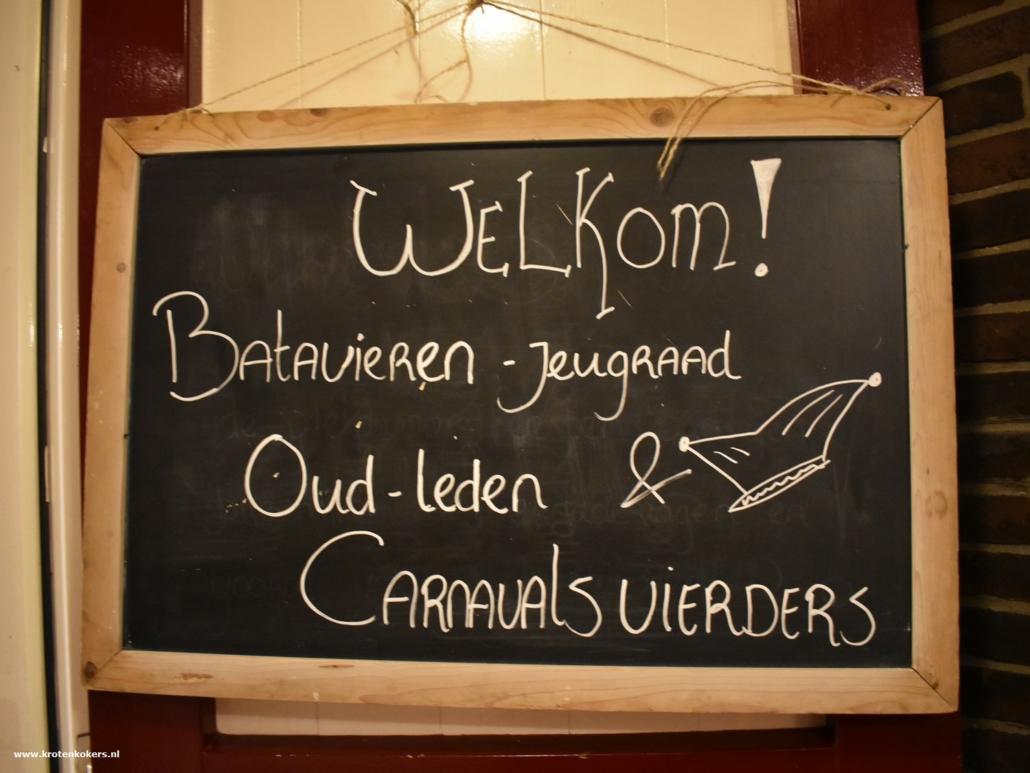 WELKOM!
BATAVIEREN - JEUGRAAD
Oud-leden &
CARNAVALSVIERDERS
www.krotenkokers.nl